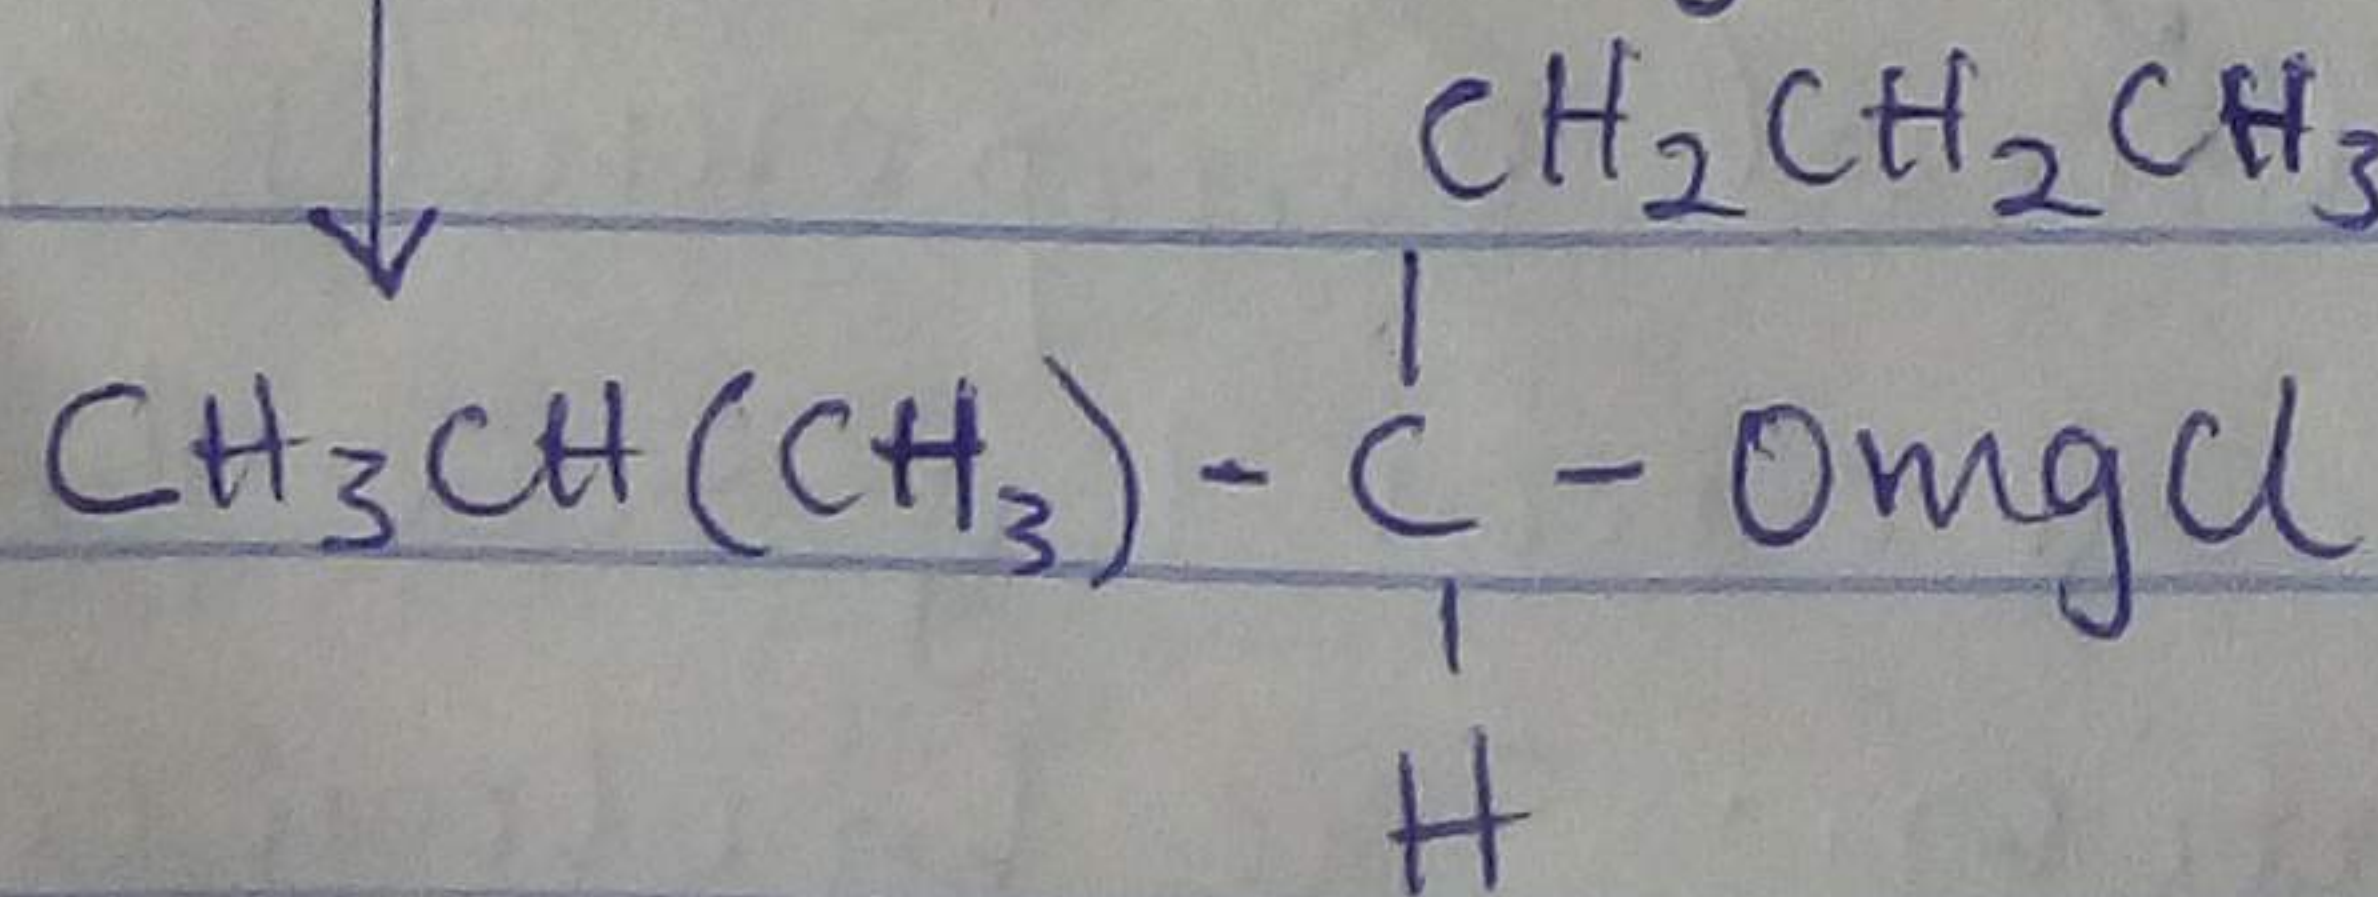 CH₂CH₂CH₃
|
CH₃CH(CH₃) - C - OmgCl
|
H